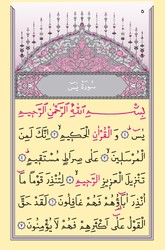 ٥
سُورَةُ يسٓ
بِسْمِ اللّٰهِ الرَّحْمٰنِ الرَّحِيمِ
يسٓ ﴿١﴾ وَالْقُرْاٰنِ الْحَكِيمِ ﴿٢﴾ اِنَّكَ لَمِنَ
الْمُرْسَلِينَ ﴿٣﴾ عَلٰى صِرَاطٍ مُسْتَقِيمٍ ﴿٤﴾
تَنْزِيلَ الْعَزِيزِ الرَّحِيمِ ﴿٥﴾ لِتُنْذِرَ قَوْمًا مَا
اُنْذِرَ اٰبَاؤُهُمْ فَهُمْ غَافِلُونَ ﴿٦﴾ لَقَدْ حَقَّ
الْقَوْلُ عَلٰى اَكْثَرِهِمْ فَهُمْ لَا يُؤْمِنُونَ ﴿٧﴾